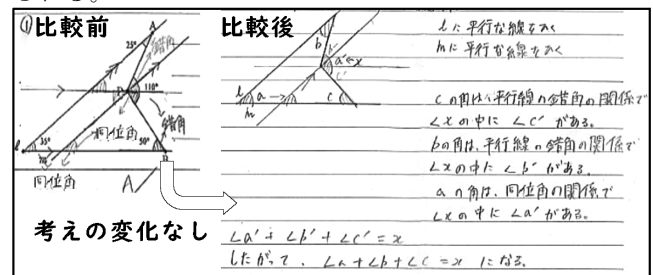 ①比較前
比較後
A
25°
錯角
P
110°
錯角
同位角
ℓ
35°
m
50°
B
同位角
A
考えの変化なし
b
b'
a'
x
c'
ℓ
a
m
c
ℓに平行な線をおく
mに平行な線をおく
cの角は、平行線の錯角の関係で
∠xの中に∠c'がある。
bの角は、平行線の錯角の関係で
∠xの中に∠b'がある。
aの角は、同位角の関係で
∠xの中に∠a'がある。
∠a'+∠b'+∠c'=x
したがって、∠a+∠b+∠c=xになる。